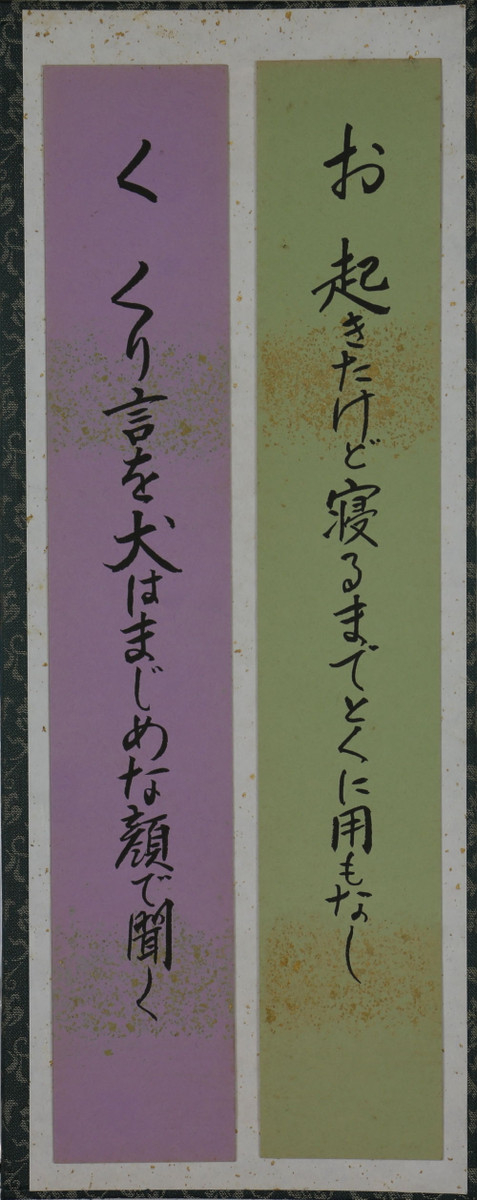 お 起きたけど寝るまでとくに用もなし
く くり言を犬はまじめな顔で聞く